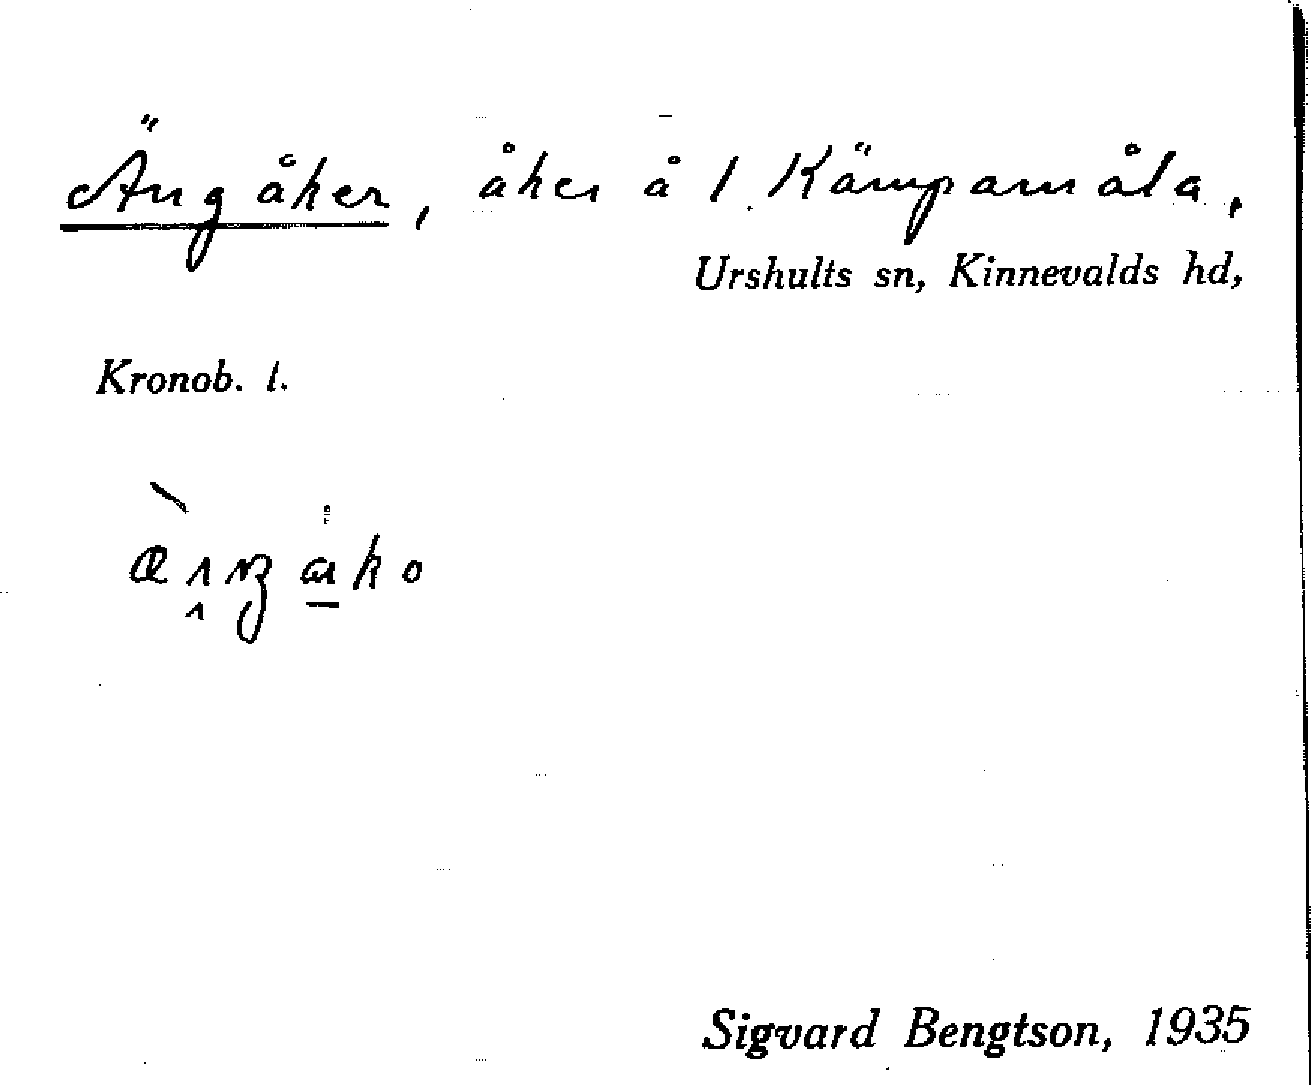 Ängåker, åker å 1 Kämpamåla,
Urshults sn, Kinnevalds hd,
Kronob. l.
Sigvard Bengtson, 1935